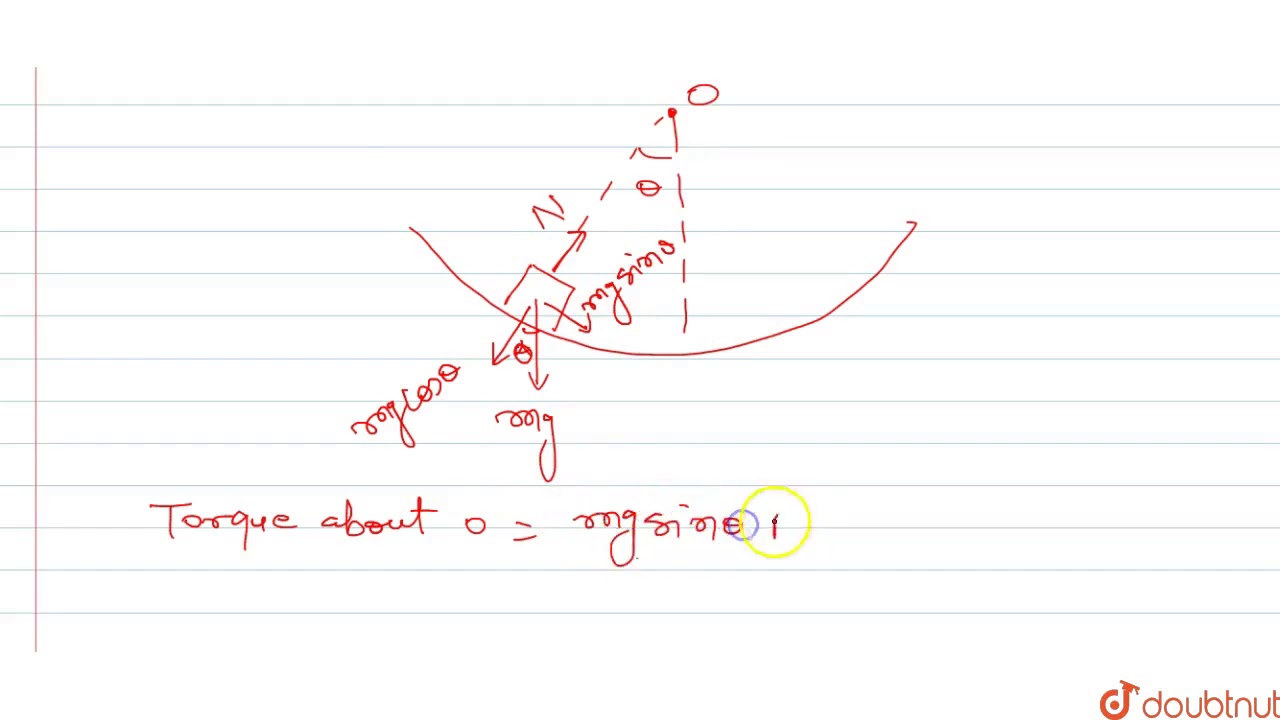 O
θ
N
mg sinθ
θ
mg cosθ
mg
Torque about O = mg sinθ r
doubtnut